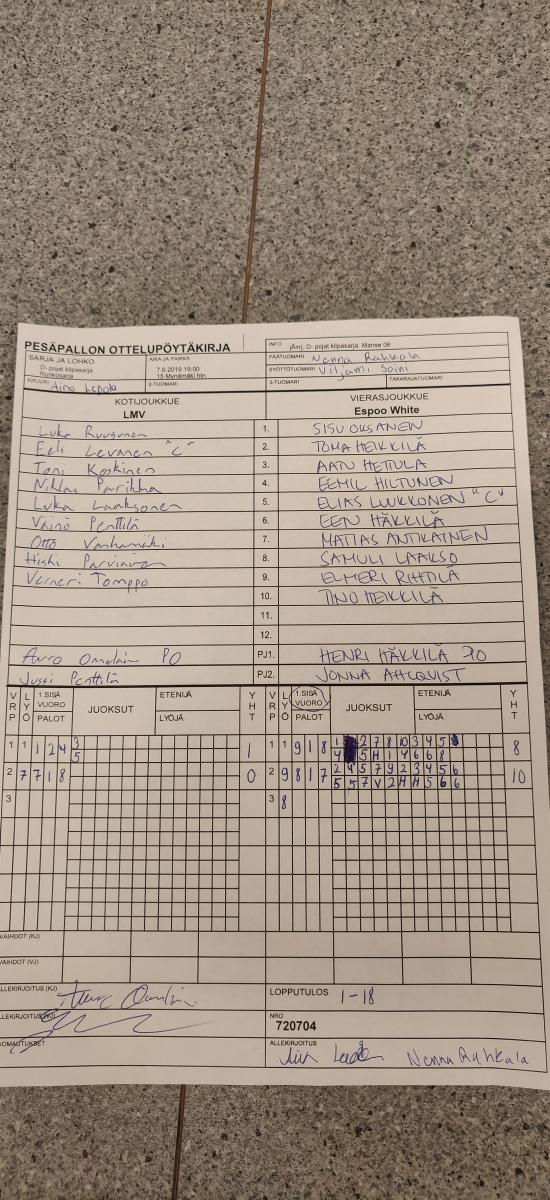 PESÄPALLON OTTELUPÖYTÄKIRJA
INFO jAerj, D- pojat kilpasarja Manse 06
SARJA JA LOHKO
D- pojat kilpasarja
Runkosarja
AIKA JA PAIKKA
7.6.2019 19:00
15 Mynämäki htn
PÄÄTUOMARI Nenna Rahkala
SYÖTTÖTUOMARI Viljami Soini
KIRJURI Aino Lepola
2-TUOMARI
3-TUOMARI
TAKARAJATUOMARI
KOTIJOUKKUE
LMV
VIERASJOUKKUE
Espoo White
Luka Ruusunen 1. SISU OKSANEN
Eeli Levanen "C" 2. TOMA HEIKKILÄ
Toni Koskinen 3. AATU HETULA
Niklas Parikka 4. EEMIL HILTUNEN
Luka Laaksonen 5. ELIAS LUUKKONEN "C"
Väinö Penttilä 6. EEN HÄKKILÄ
Otto Vanhamäki 7. MATIAS ANTIKAINEN
Hiski Parviainen 8. SAMULI LAAKSO
Verneri Tomppo 9. ELMERI RIHTILÄ
10. TINO HEIKKILÄ
11.
12.
PO PJ1. HENRI HÄKKILÄ PO
Jussi Penttilä PJ2. JONNA AHLQVIST
VRP LYÖ 1.SISÄ VUORO PALOT JUOKSUT ETENIJÄ LYÖJÄ YHT
VRP LYÖ 1.SISÄ VUORO PALOT JUOKSUT ETENIJÄ LYÖJÄ YHT
1 1 1 2 4 3 1 1 1 9 1 8 1 2 7 8 10 3 4 5 8
5 4 5 H 1 4 6 6 8
2 7 7 1 8 0 2 9 8 1 7 2 4 5 7 9 2 3 4 5 6 10
5 5 7 V 2 H H 5 6 6
3 3 8
VAIHDOT (KJ)
VAIHDOT (VJ)
ALLEKIRJOITUS (KJ)
LOPPUTULOS 1-18
ALLEKIRJOITUS (VJ)
NRO
720704
HUOMAUTUKSET
ALLEKIRJOITUS
Nenna Rahkala